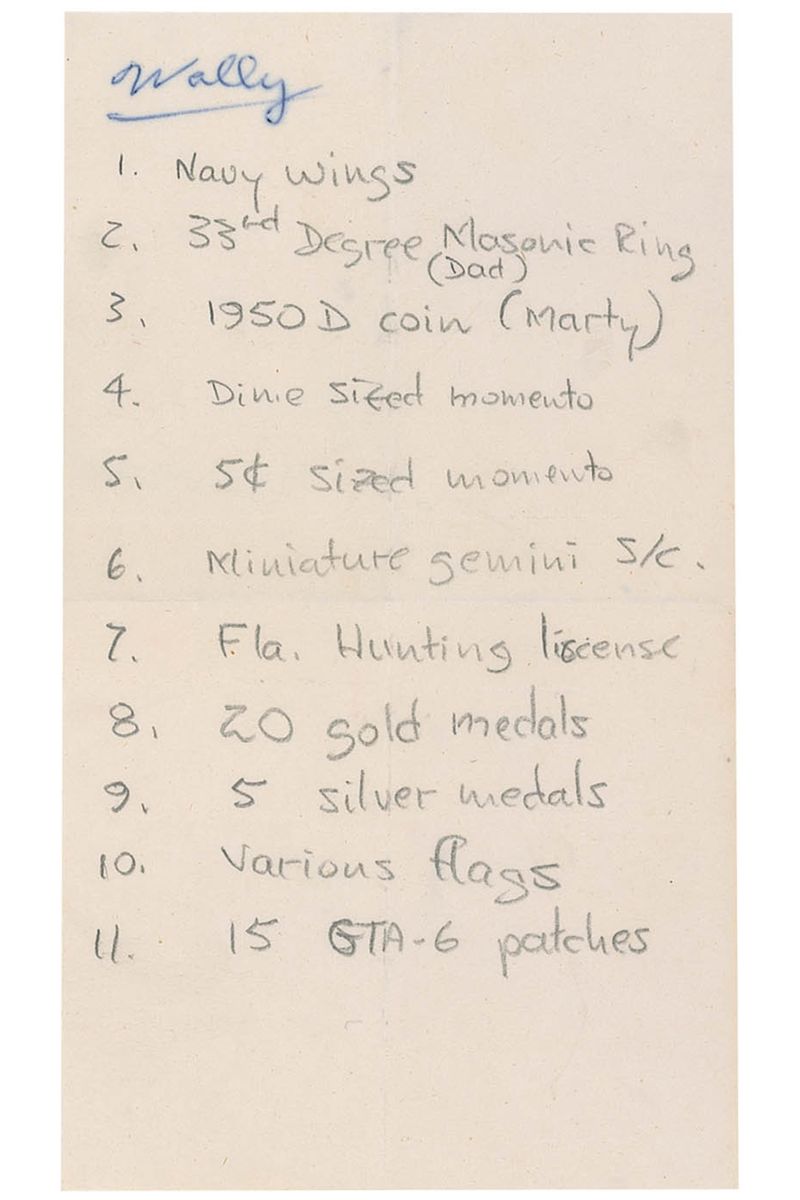 Wally
1. Navy Wings
2. 33rd Degree Masonic Ring
(Dad)
3. 1950 D coin (Marty)
4. Dime sized momento
5. 5¢ sized momento
6. Miniature gemini S/c.
7. Fla. Hunting liscense
8. 20 gold medals
9. 5 silver medals
10. Various flags
11. 15 GTA-6 patches